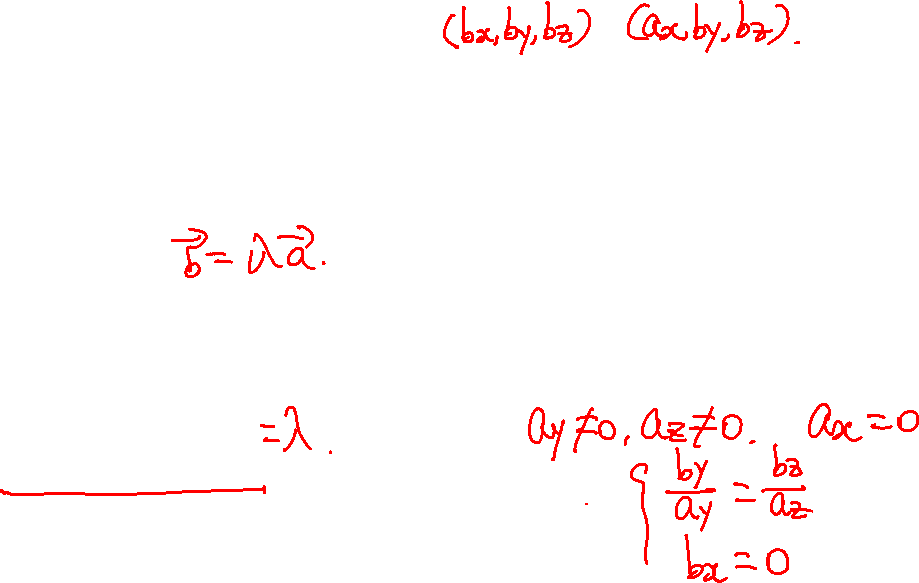 (bx,by,bz) (ax,by,bz).
b⃗ = λa⃗.
=λ. ay≠0, az≠0. ax=0
{ by/ay = bz/az
bx=0